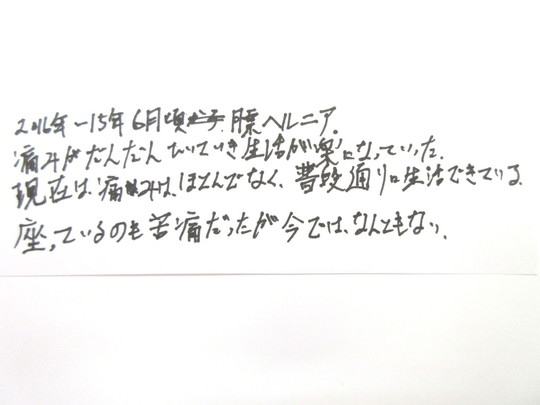 2016年-15年6月頃 腰ヘルニア。
痛みがだんだんひいていき生活が楽になっていった。
現在は、痛みは、ほとんどなく、普段通りに生活できている。
座っているのも苦痛だったが今では、なんともない。